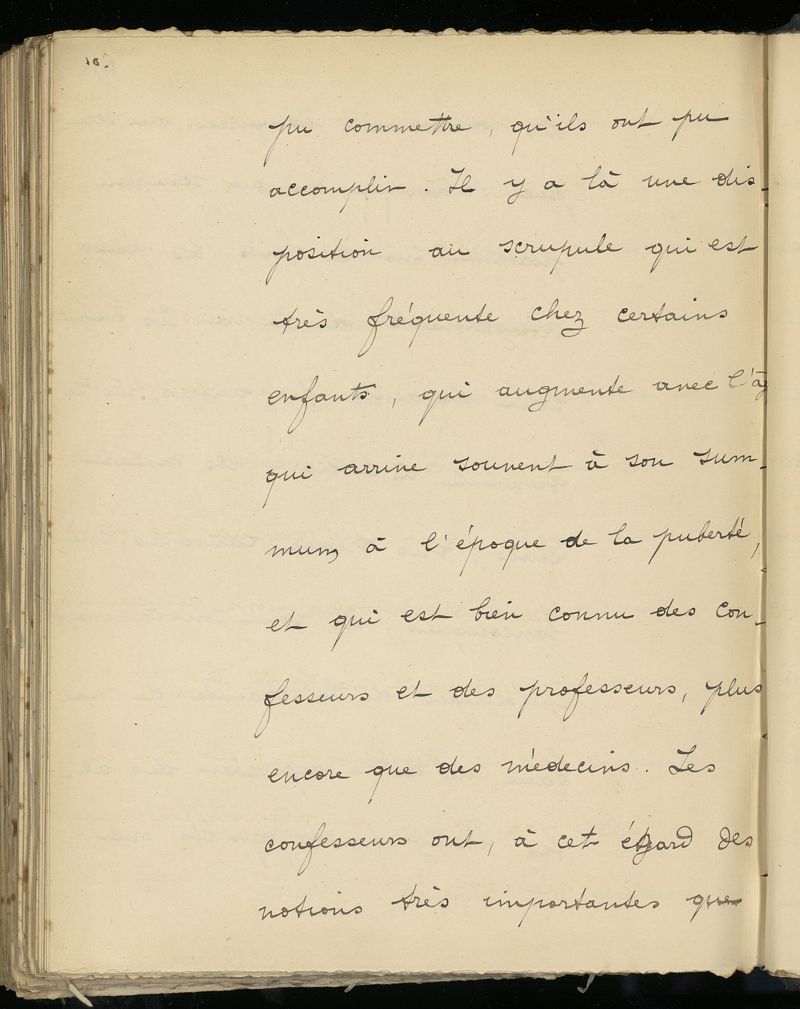 10.
pu commettre, qu'ils ont pu
accomplir. Il y a là une dis-
position au scrupule qui est
très fréquente chez certains
enfants, qui augmente avec l'âg
qui arrive souvent à son sum-
mum, à l'époque de la puberté,
et qui est bien connu des con-
fesseurs et des professeurs, plus
encore que des médecins. Les
confesseurs ont, à cet égard des
notions très importantes que